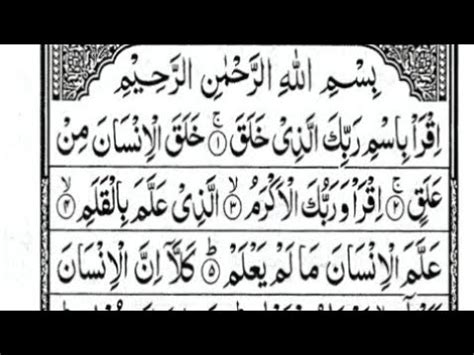 بِسْمِ اللهِ الرَّحْمٰنِ الرَّحِيْمِ
اِقْرَاْ بِاسْمِ رَبِّكَ الَّذِىْ خَلَقَ ۚ‏ ﴿۱﴾ خَلَقَ الْاِنْسَانَ مِنْ
عَلَقٍ ۚ‏ ﴿۲﴾ اِقْرَاْ وَرَبُّكَ الْاَكْرَمُ ۙ‏ ﴿۳﴾ الَّذِىْ عَلَّمَ بِالْقَلَمِ ۙ‏ ﴿۴﴾
عَلَّمَ الْاِنْسَانَ مَا لَمْ يَعْلَمْ ؕ‏ ﴿۵﴾ كَلَّاۤ اِنَّ الْاِنْسَانَ